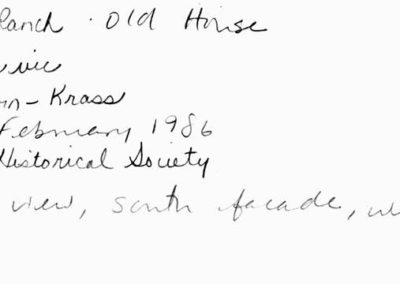 Ranch · Old House
vic
on-Krass
February 1986
Historical Society
view, south facade, w